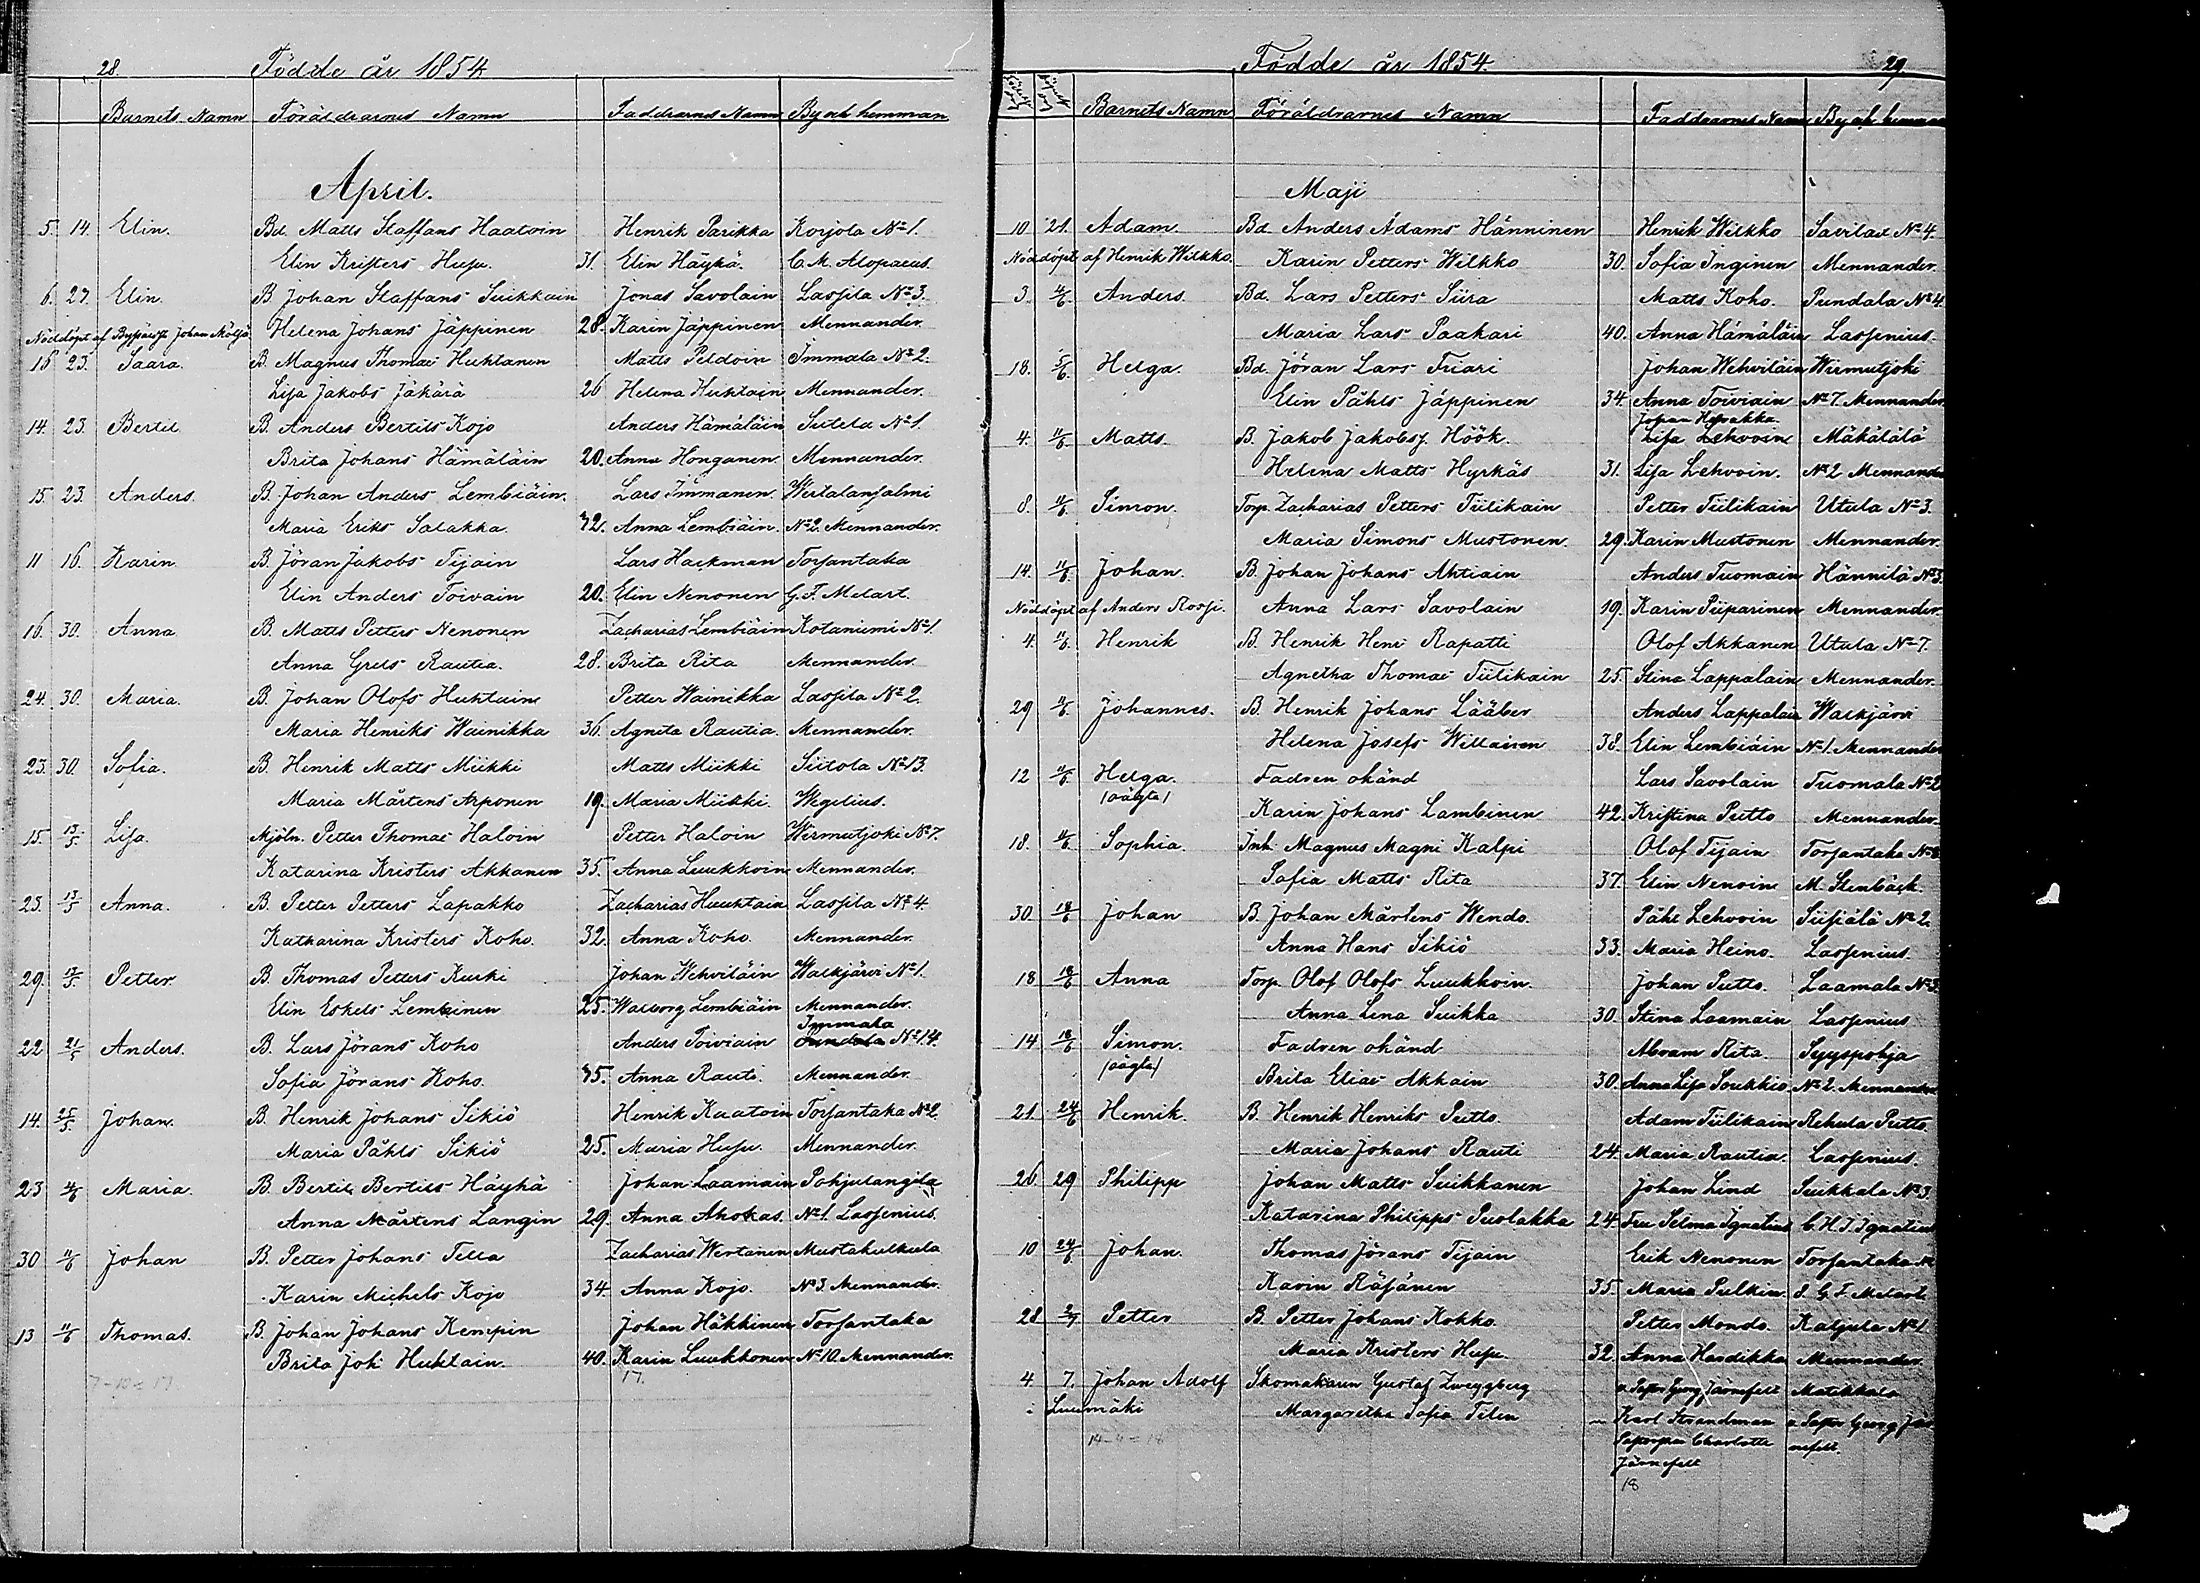 28. Födde år 1854
Barnets Namn Föräldrarnes Namn Faddrarnes Namn By och hemman
April.
5. 14. Elin. Bd. Matts Staffans Haatoin Henrik Parikka Korjola No 1.
Elin Kristers Huju. 31. Elin Häyhä. C. M. Alopaeus.
6. 27. Elin. B. Johan Staffans Suikkain Jonas Savolain Lassila No 3.
Nöddöpt af Johan Helena Johans Jäppinen 28. Karin Jäppinen Mennander.
16 23. Saara. B. Magnus Thomae Huhtanen Matts Peldoin Immala No 2.
Lisa Jakobs Jäkärä 26 Helena Huhtain Mennander.
14. 23. Bertil B. Anders Bertils Kojo Anders Hämäläin Sutela No 1.
Brita Johans Hämäläin 20. Anna Honganen Mennander.
15. 23. Anders. B. Johan Anders Lembiäin. Lars Immanen. Wertalansalmi
Maria Eriks Salakka. 32. Anna Lembiäin. No 2. Mennander.
11 16. Karin B. Jöran Jakobs Tijain Lars Hackman Torsantaka
Elin Anders Toivain 20. Elin Nenonen G. F. Melart.
16. 30. Anna B. Matts Petters Nenonen Zacharias Lembiäin Kotaniemi No 1.
Anna Grels Rautia. 28. Brita Rita Mennander.
24. 30. Maria. B. Johan Olofs Huhtain Petter Wainikka Lassila No 2.
Maria Henriks Wainikka 36. Agneta Rautia. Mennander.
23. 30. Sofia. B. Henrik Matts Miikki Matts Miikki Siitola No 13.
Maria Mårtens Arponen 19. Maria Miikki. Wegelius.
15. 13/5. Lisa. Mjöln. Petter Thomae Haloin Petter Haloin Wirmutjoki No 7.
Katarina Kristers Akkanen 35. Anna Luukkoin Mennander.
25. 13/5 Anna. B. Petter Petters Lapakko Zacharias Huuhtain Lassila No 4.
Katharina Kristers Koho. 32. Anna Koho. Mennander.
29. 13/5. Petter. B. Thomas Petters Kurki Johan Wehviläin Walkjärvi No 1.
Elin Eskels Lembinen 25. Walborg Lembiäin Mennander.
Immala
22 21/5 Anders. B. Lars Jörans Koho Anders Toiviain Pundala No 14.
Sofia Jörans Koho. 35. Anna Rauti. Mennander.
14. 25/5. Johan. B. Henrik Johans Sikiö Henrik Kaatoin Torsantaka No 2
Maria Påhls Sikiö 25. Maria Huju. Mennander.
23 4/6 Maria. B. Bertils Bertils Häyhä Johan Laamain Pohjulangila
Anna Mårtens Langin 29. Anna Ahokas. No 1. Lassenius.
30 11/6 Johan B. Petter Johans Tella Zacharias Wertanen Mustakulkula
Karin Michels Kojo 34 Anna Kojo. No 3 Mennander.
13 11/6 Thomas. B. Johan Johans Kempin Johan Häkkinen Torsantaka
Brita Joh Huhtain. 40. Karin Luukkonen No 10 Mennander.
7-10=17 17.
Födde år 1854. 29.
Barnets Namn Föräldrarnes Namn Faddrarnes Namn By och hemman
Maji
10 21. Adam. Bd. Anders Adams Hänninen Henrik Wilkko Savilax No 4.
Nöddöpt af Henrik Wilkko. Karin Petters Wilkko 30. Sofia Inginen Mennander.
3. 4/6 Anders. Bd. Lars Petters Siira Matts Koho. Pundala No 4.
Maria Lars Paakari 40. Anna Hämäläin Lassenius.
18. 5/6. Helga. Bd. Jöran Lars Fuari Johan Wehviläin Wirmutjoki
Elin Påhls Jäppinen 34. Anna Toiviain No 7. Mennander.
4. 11/6 Matts. B. Jakob Jakobs. Höök. Lisa Lehvoin Mäkälälä
Helena Matts Hyrkäs 31. Lisa Lehvoin. No 2 Mennander
8. 11/6 Simon. Torp. Zacharias Petters Tiilikain Petter Tiilikain Utula No 3.
Maria Simons Mustonen. 29. Karin Mustonen Mennander.
14. 11/6 Johan. B. Johan Johans Ahtiain Anders Tuomain Hännilä No 3.
Nöddöpt af Anders Rossi. Anna Lars Savolain 19. Karin Piiparinen Mennander.
4. 11/6. Henrik B. Henrik Henr Rapatti Olof Akkanen Utula No 7.
Agnetha Thomae Tiilikain 25. Stina Lappalain Mennander.
29 11/6. Johannes. B. Henrik Johans Lääber Anders Lappalain Walkjärvi
Helena Josefs Willainen 38. Elin Lembiäin No 1. Mennander
12 11/6 Helga. Fadren okänd Lars Savolain Tuomala No 2
(oägta) Karin Johans Lambinen 42. Kristina Putto Mennander.
18. 11/6. Sophia. Inh. Magnus Magni Kalpi Olof Tijain Torsantaka No
Sofia Matts Rita 37. Elin Nenoin M. Stenbäck.
30. 18/6 Johan B. Johan Mårtens Wendo. Påhl Lehvoin Siisiälä No 2.
Anna Hans Sikiö 33. Maria Heino. Lassenius.
18 18/6 Anna Torp. Olof Olofs Luukkoin. Johan Putto. Laamala No 3.
Anna Lena Suikka 30. Stina Laamain Lassenius
14 18/6 Simon. Fadren okänd Abram Rita. Syyspohja
(oägta) Brita Eliae Akkain 30. Anna Lisa Soukkio No 2. Mennander
21. 24/6 Henrik. B. Henrik Henriks Putto. Adam Tiilikain Rehula Putto.
Maria Johans Rauti 24. Maria Rautia. Lassenius.
26 29 Philipp Johan Matts Suikkanen Johan Lind Suikkala No 3.
Katarina Philipps Puolakka 24. Fru Selma Ignatius C. H. J. Ignatius
10 24/6 Johan. Thomas Jörans Tijain Erik Nenonen Torsantaka No
Karin Räsänen 35. Maria Pulkin. G. F. Melart.
28 2/7 Petter B. Petter Johans Kokko. Petter Mondo. Kaljula No 1.
Maria Kristers Huju. 32. Anna Hardikka Mennander.
4 7. Johan Adolf Skomakaren Gustaf Zweygberg Georg Järnefelt Matikkala
i Luumäki Margaretha Sofia Tilen – Karl Strandman Georg Jär
14-4=18 Charlotte nefelt.
Järnefelt
18